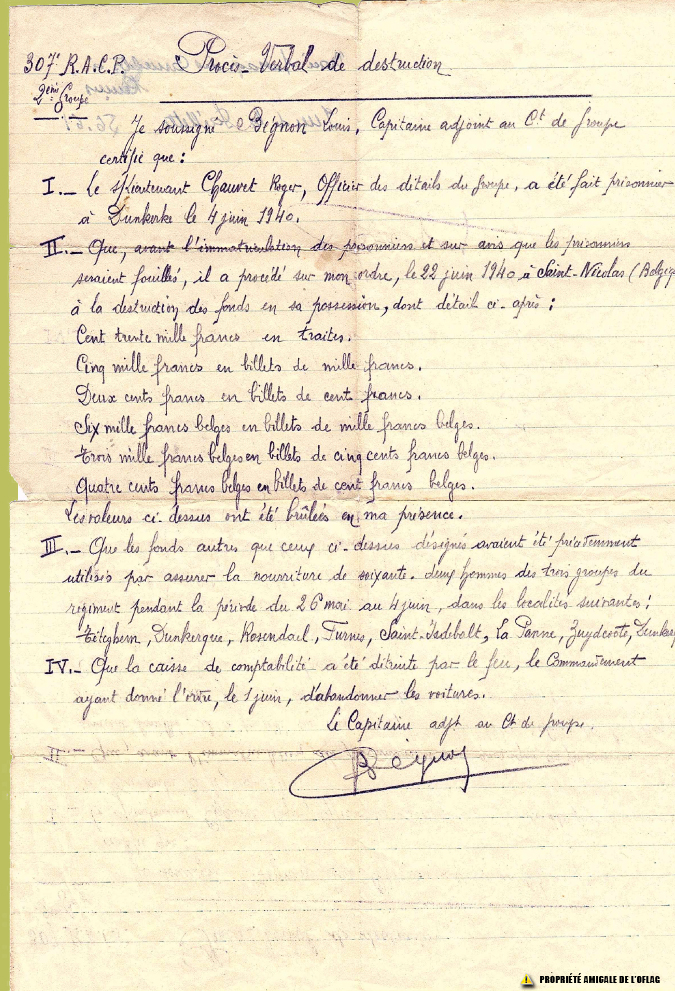 307e R.A.C.P. Procès-Verbal de destruction
2ème Groupe
Je soussigné Bignon Louis, Capitaine adjoint au Ct de Groupe
certifie que :
I.- Le s/lieutenant Chauvet Roger, Officier des détails du Groupe, a été fait prisonnier
à Dunkerke le 4 juin 1940.
II.- Que, avant l'immatriculation des prisonniers et sur avis que les prisonniers
seraient fouillés, il a procédé sur mon ordre, le 22 juin 1940 à Saint-Nicolas (Belgiq
à la destruction des fonds en sa possession, dont détail ci-après :
Cent trente mille francs en traites.
Cinq mille francs en billets de mille francs.
Deux cents francs en billets de cent francs.
Six mille francs belges en billets de mille francs belges.
Trois mille francs belges en billets de cinq cents francs belges.
Quatre cents francs belges en billets de cent francs belges.
Les valeurs ci-dessus ont été brûlées en ma présence.
III.- Que les fonds autres que ceux ci-dessus désignés avaient été précédemment
utilisés par assurer la nourriture de soixante-deux hommes des trois groupes du
régiment pendant la période du 26 mai au 4 juin, dans les localités suivantes :
Téteghem, Dunkerque, Rosendael, Furnes, Saint-Idebalt, La Panne, Zuydcoote, Dunker
IV.- Que la caisse de comptabilité a été détruite par le feu, le Commandement
ayant donné l'ordre, le 1 juin, d'abandonner les voitures.
Le Capitaine adjt au Ct de groupe.
Bignon
PROPRIÉTÉ AMICALE DE L'OFLAG